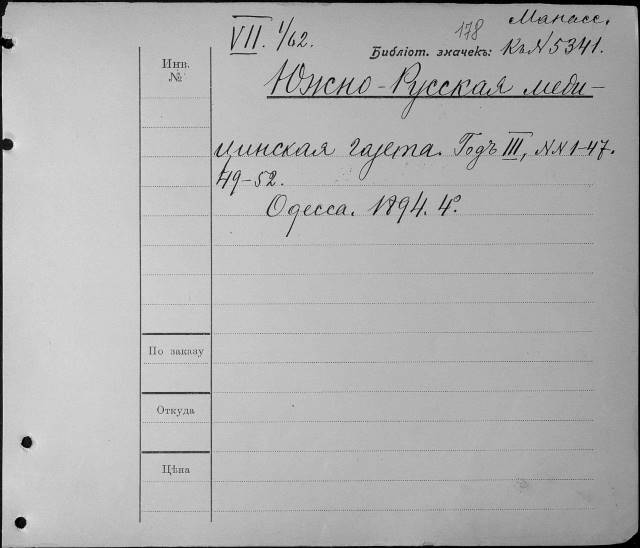 VII. 1/62.
178
Манасс.
Библіот. значекъ: Къ N 5341.
Инв.
№
Южно-Русская меди-
цинская газета. Годъ III, NN 1-47.
49-52.
Одесса. 1894. 4°.
По заказу
Откуда
Цѣна